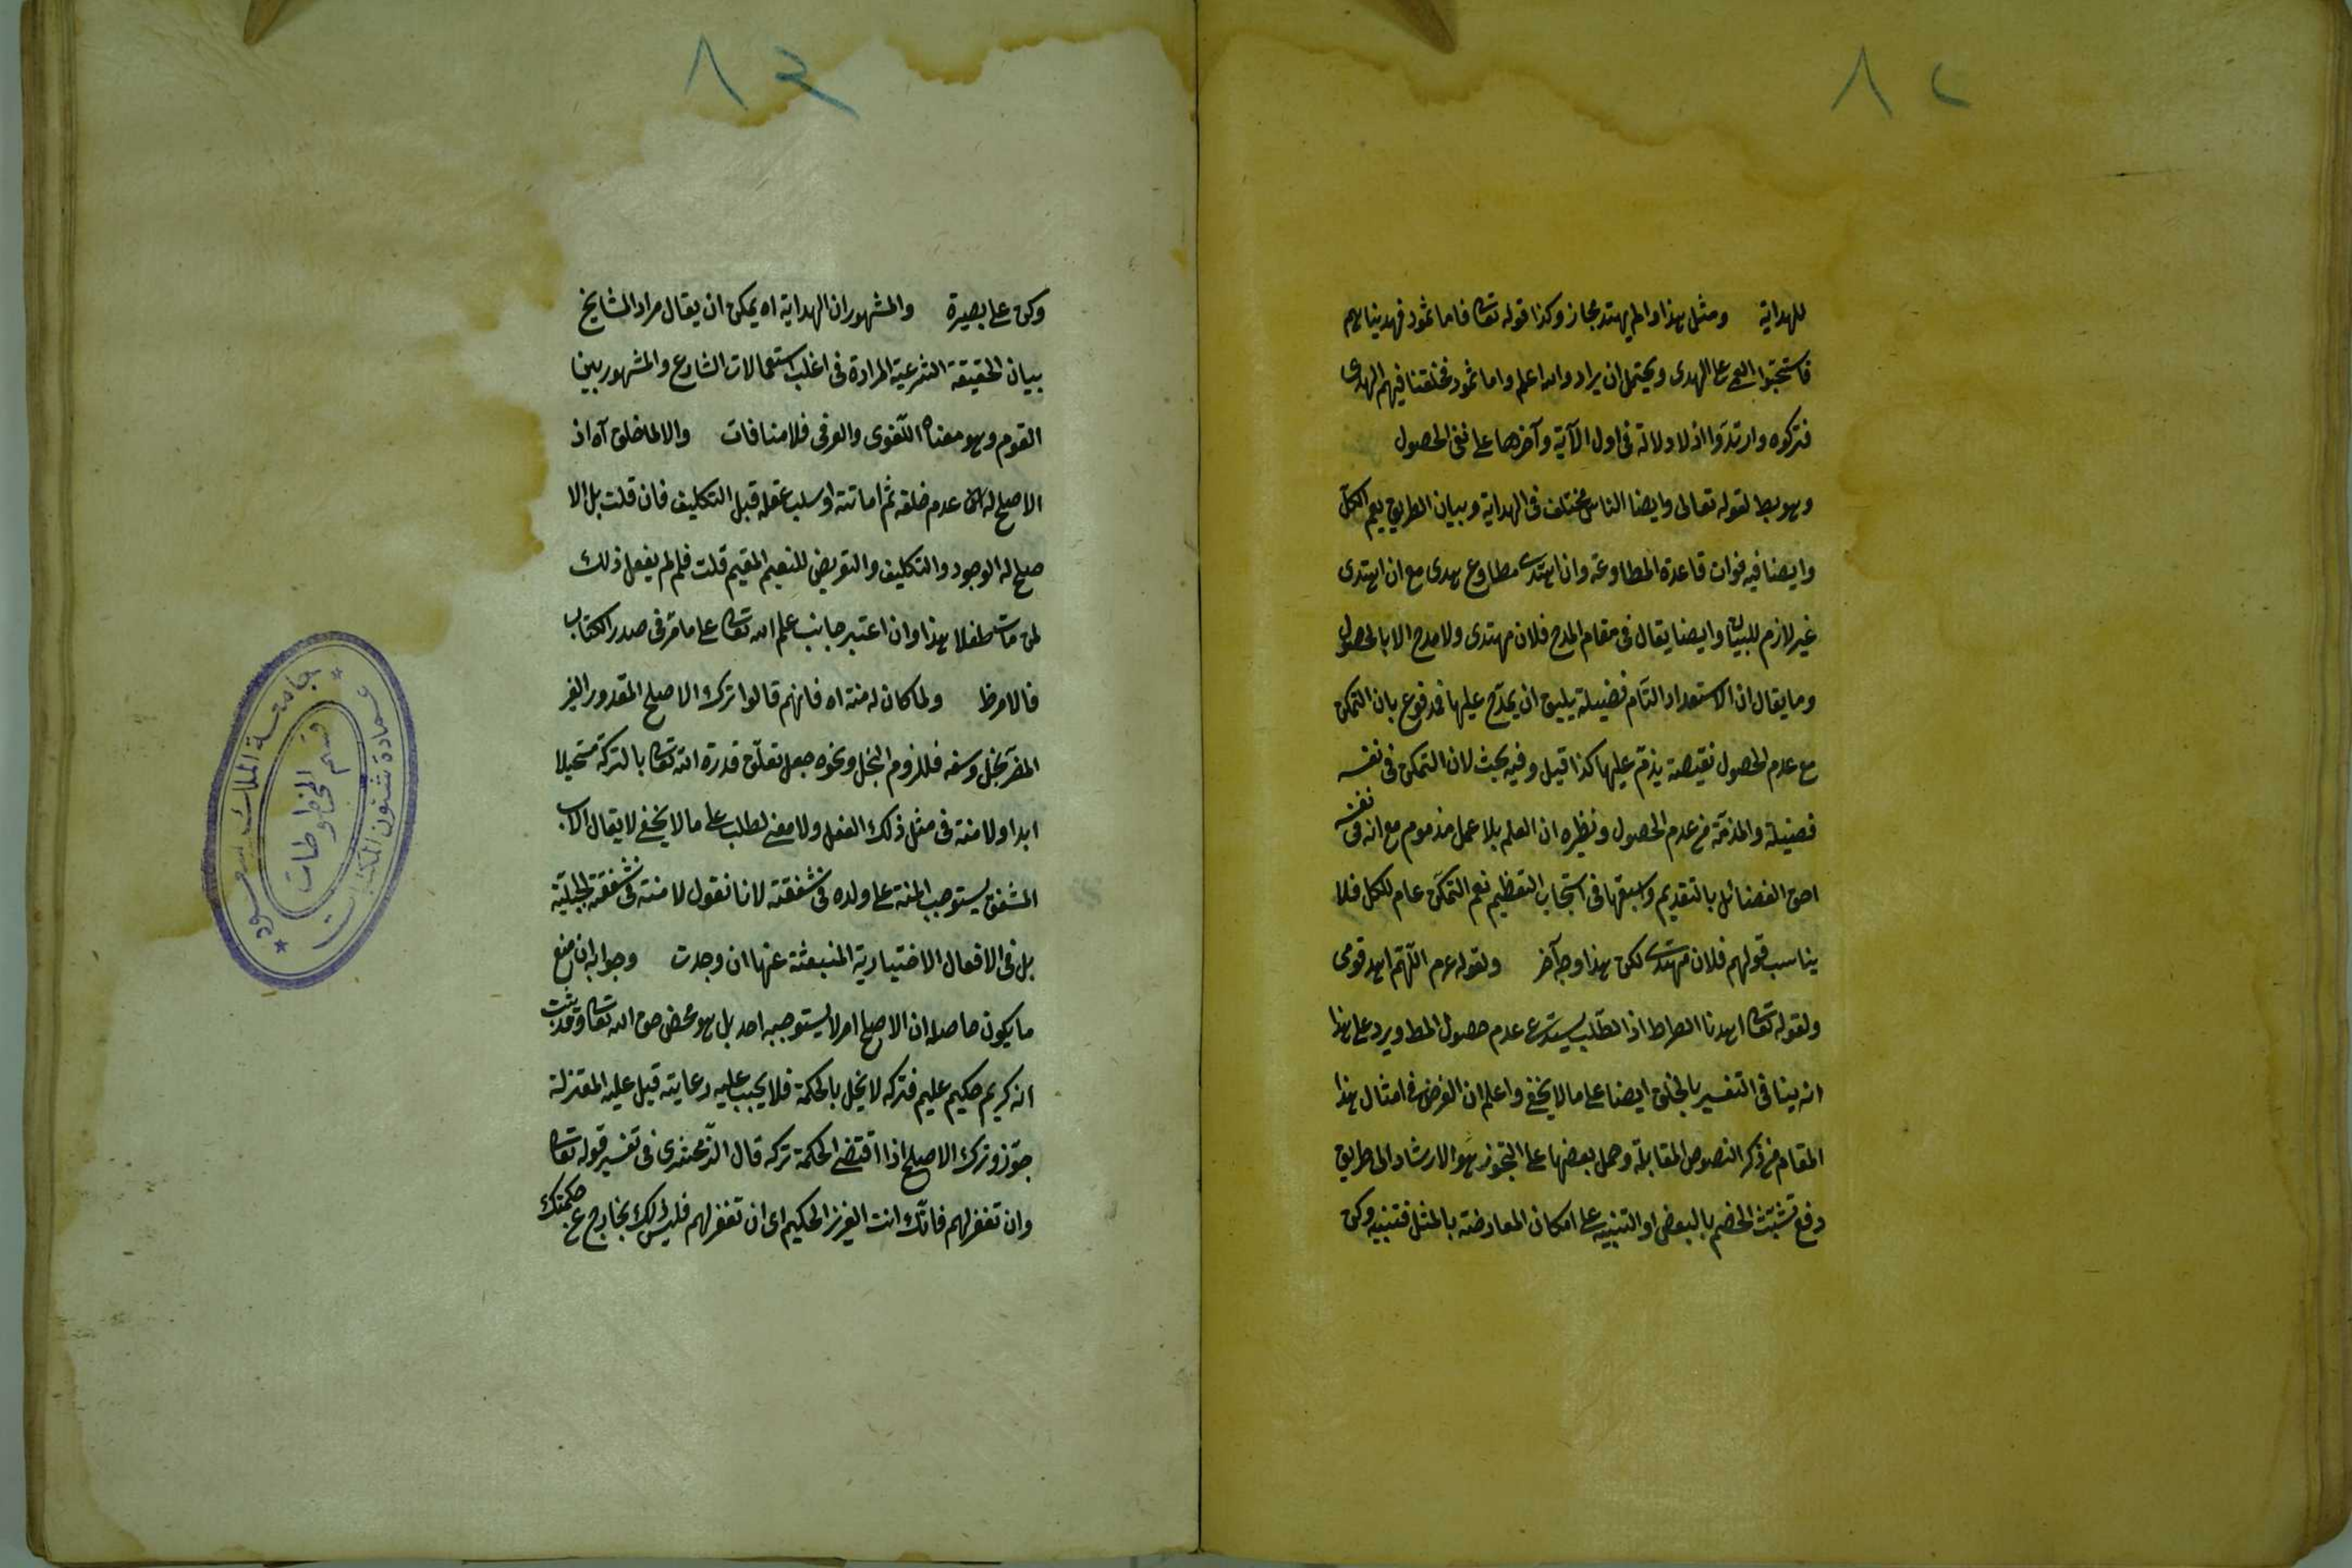 ٨٢
للهداية ومثل هذا ولم يهتد مجاز وكذا قوله تعا فاما ثمود فهديناهم
فاستحبوا العمى على الهدى ويحتمل ان يراد والله اعلم واما ثمود فخلقنا فيهم الهدى
فتركوه وارتدوا اذ لا دلالة فى اول الآية وآخرها على نفى الحصول
وهو يبط لقوله تعالى وايضا الناس مختلف فى الهداية وبيان الطريق يعم الكل
وايضا فيه فوات قاعدة المطاوعة وان اهتدى مطاوع هدى مع ان اهتدى
غير لازم للبيان وايضا يقال فى مقام المدح فلان مهتدى ولا مدح الا بالحصول
وما يقال ان الاستعداد التام فضيلة يليق ان يمدح عليها فمدفوع بان التمكن
مع عدم الحصول نقيصة يذم عليها كذا قيل وفيه بحث لان التمكن فى نفسه
فضيلة والمذمة من عدم الحصول ونظيره ان العلم بلا عمل مذموم مع انه فى نفسه
احق الفضائل بالتقديم واسبقها فى استيجاب التعظيم نعم التمكن عام للكل فلا
يناسب قولهم فلان مهتدى لكن هذا وجه آخر ولقوله عم اللهم اهد قومى
ولقوله تعا اهدنا الصراط اذ الطلب يستدعى عدم حصول المط ويرد على هذا
انه ينافى التفسير بالخلق ايضا على ما لا يخفى واعلم ان الغرض فى امثال هذا
المقام من ذكر النصوص المقابلة وحمل بعضها على التجوز هو الارشاد الى طريق
دفع تشبث الخصم بالبعض او التنبيه على امكان المعارضة بالمثل فتنبه وكن
٨٣
وكن على بصيرة والمشهور ان الهداية اه يمكن ان يقال مراد المشايخ
بيان الحقيقة الشرعية المرادة فى اغلب استعمالات الشارع والمشهور بين
القوم وهو معناه اللغوى والعرفى فلا منافات والا لما خلق آه اذ
الاصلح له عدم خلقه ثم اماتته او سلب عقله قبل التكليف فان قلت بل الا
صلح له الوجود والتكليف والتعريض للنعيم المقيم قلت فلم لم يفعل ذلك
لمن مات طفلا هذا وان اعتبر جانب علم الله تعا على ما مر فى صدر الكتاب
فالامر ظ ولما كان له منة اه فانهم قالوا ترك الاصلح المقدور الغير
المضر بخل وسفه فللزوم البخل ونحوه جعل تعلق قدرة الله تعا بالترك مستحيلا
ابدا ولا منة فى مثل ذلك الفعل ولا معنى لطلب على ما لا يخفى لا يقال الاب
المشفق يستوجب المنة على ولده فى شفقته لانا نقول لا منة فى شفقته الجبلية
بل فى الافعال الاختيارية المنبعثة عنها ان وجدت وجوابه ان منع
ما يكون حاصله ان الاصلح امر لا يستوجبه احد بل هو محض حق الله تعا وقد ثبت
انه كريم حكيم عليم فتركه لا يخل بالحكمة فلا يجب عليه رعايته قيل عليه المعتزلة
جوزوا ترك الاصلح اذا اقتضى الحكمة تركه قال الزمخشرى فى تفسير قوله تعا
وان تغفر لهم فانك انت العزيز الحكيم اى ان تغفر لهم فليس ذلك بخارج عن حكمتك
جامعة الملك سعود
عمادة شئون المكتبات
قسم المخطوطات